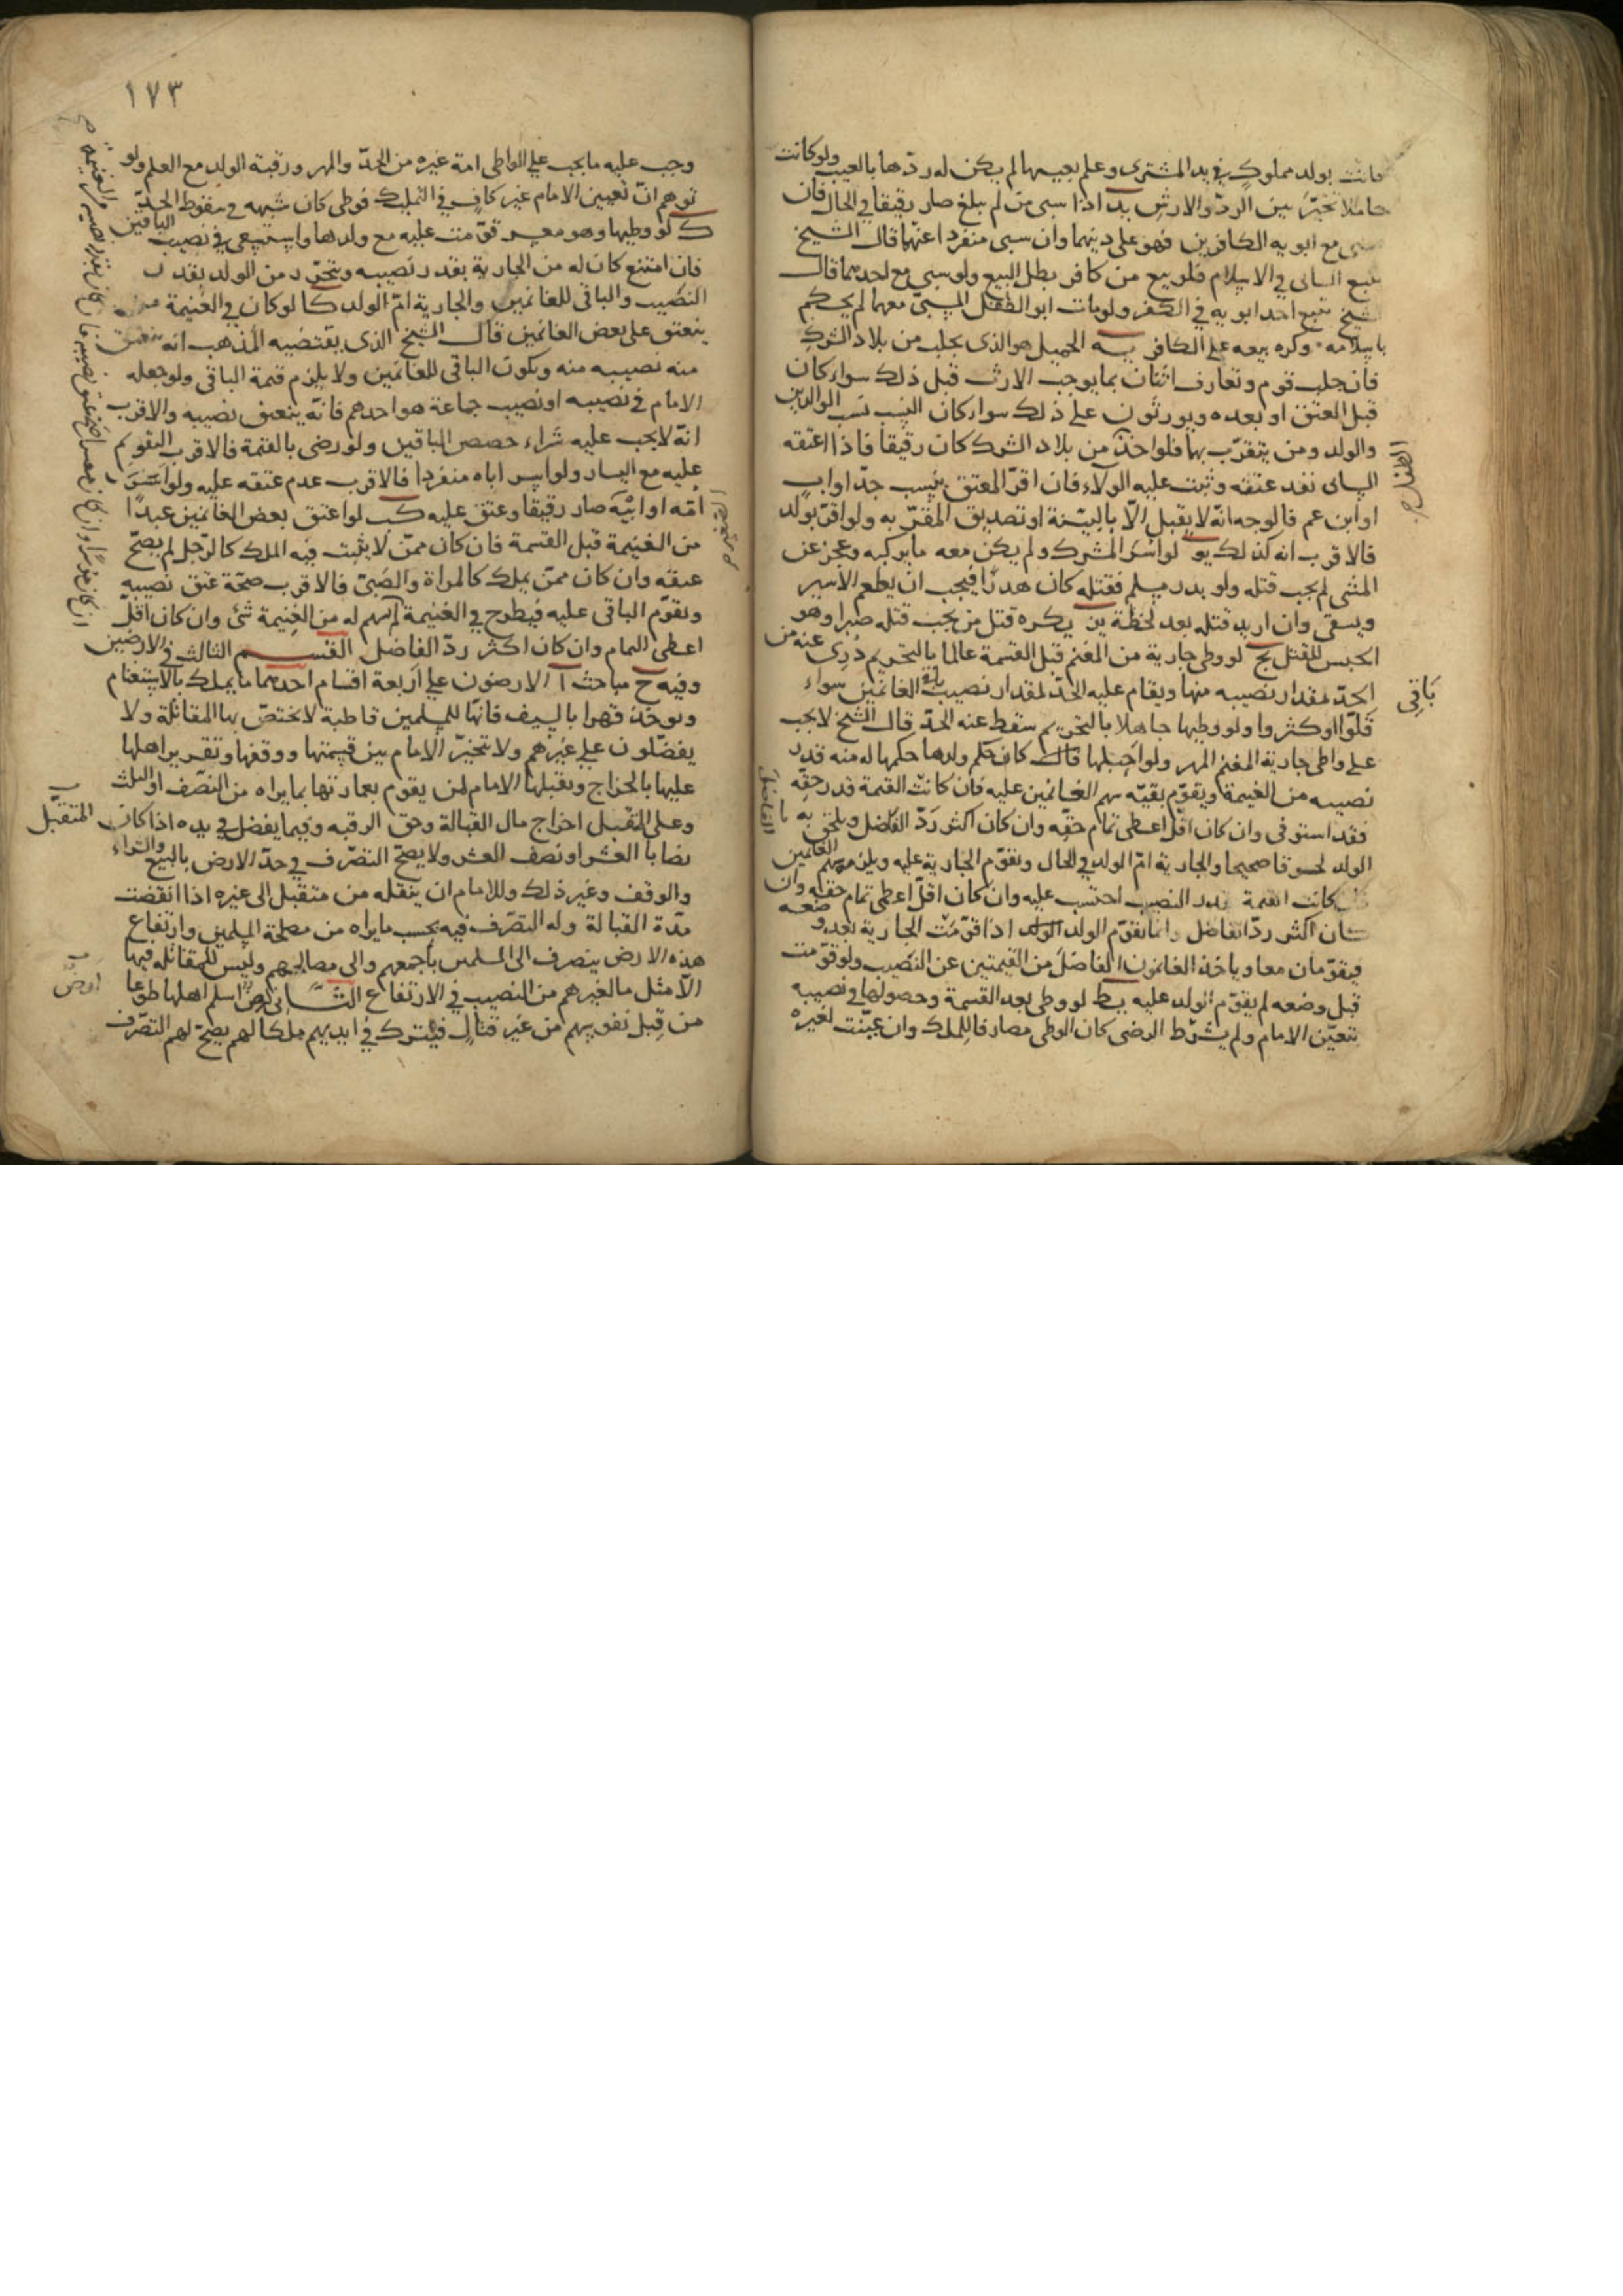 كانت بولد مملوك في يد المشترى وعلم بعيبها لم يكن له ردها بالعيب ولو كانت
حاملا تخير بين الرد والارش يد اذا سبى من لم يبلغ صار رقيقا في الحال فان
سبى مع ابويه الكافرين فهو على دينهما وان سبى منفردا عنهما قال الشيخ
يتبع السابى في الاسلام فلو بيع من كافر بطل البيع ولو سبى مع احدهما قال
الشيخ تتبع احد ابويه في الكفر ولو مات ابو الطفل المسبى معهما لم يحكم
باسلامه وكره بيعه على الكافر يه الحميل هو الذى يجلب من بلاد الشرك
فان جلب قوم وتعارف اثنان بما يوجب الارث قبل ذلك سواء كان
قبل العتق او بعده ويورثون على ذلك سواء كان النسب نسب الوالدين
والولد ومن يتقرب بهما فلو اخذ من بلاد الشرك كان رقيقا فاذا اعتقه
السابى نفذ عتقه وثبت عليه الولاء فان اقر المعتق بنسب جد او اب
او ابن عم فالوجه انه لا يقبل الا بالبينة او تصديق المقر به ولو اقر بولد
فالاقرب انه كذلك يو لو اسر المشرك ولم يكن معه ما يركبه وعجز عن
المشى لم يجب قتله ولو بدر مسلم فقتله كان هدرا فيجب ان يطعم الاسير
ويسقى وان اريد قتله بعد لحظة ين يكره قتل من يجب قتله صبرا وهو
الحبس للقتل يح لو وطى جارية من المغنم قبل القسمة عالما بالتحريم درى عنه من
الحد بمقدار نصيبه منها ويقام عليه الحد بمقدار نصيب باقى الغانمين سواء
قلوا او كثروا ولو وطيها جاهلا بالتحريم سقط عنه الحد قال الشيخ لا يجب
على واطى جارية المغنم المهر ولو احبلها قال كان حكم ولدها حكمها له منه قدر
نصيبه من الغنيمة ويقوم بقية سهم الغانمين عليه فان كانت القيمة قدر حقه
فقد استوفى وان كان اقل اعطى تمام حقه وان كان اكثر رد الفاضل ويلحق به
الولد لحوقا صحيحا والجارية ام الولد في الحال وتقوم الجارية عليه ويلزمه سهم الغانمين
كانت القيمة بقدر النصيب احتسب عليه وان كان اقل اعطى تمام حقه وان
كان اكثر رد الفاضل وانما يقوم الولد اذا قومت الجارية بعد وضعه
فيقومان معا وياخذ الغانمون الفاضل من القيمتين عن النصيب ولو قومت
قبل وضعه لم يقوم الولد عليه يط لو وطى بعد القسمة وحصولها في نصيبه
بتعيين الامام ولم يشترط الرضى كان الوطى مصادفا للملك وان عينت لغيره
باقى
الفاضل
١٧٣
وجب عليه ما يجب على الواطى امة غيره من الحد والمهر ورقبة الولد مع العلم ولو
توهم ان تعيين الامام غير كاف في التمليك فوطى كان شبهه في سقوط الحد
ك لو وطيها وهو معسر قومت عليه مع ولدها واستسعى في نصيب الباقين
فان امتنع كان له من الجارية بقدر نصيبه ويتحرر من الولد بقدر
النصيب والباقى للغانمين والجارية ام الولد كا لو كان في الغنيمة من
ينعتق على بعض الغانمين قال الشيخ الذى يقتضيه المذهب انه ينعتق
منه نصيبه منه ويكون الباقى للغانمين ولا يلزم قيمة الباقى ولو جعله
الامام في نصيبه او نصيب جماعة هو احدهم فانه ينعتق نصيبه والاقرب
انه لا يجب عليه شراء حصص الباقين ولو رضى بالقيمة فالاقرب التقويم
عليه مع اليسار ولو اسر اباه منفردا فالاقرب عدم عتقه عليه ولو اسر
امه او ابنه صار رقيقا وعتق عليه كب لو اعتق بعض الغانمين عبدا
من الغنيمة قبل القسمة فان كان ممن لا يثبت فيه الملك كالرجل لم يصح
عتقه وان كان ممن يملك كالمراة والصبى فالاقرب صحة عتق نصيبه
ويقوم الباقى عليه فيطرح في الغنيمة لم سهم له من الغنيمة شئ وان كان اقل
اعطى التمام وان كان اكثر رد الفاضل القسم الثالث في الارضين
وفيه ح مباحث ا الارضون على اربعة اقسام احدهما ما يملك بالاستغنام
ويوخذ قهرا بالسيف فانها للمسلمين قاطبة لا يختص بها المقاتلة ولا
يفضلون على غيرهم ولا يتخير الامام بين قسمتها ووقفها وتقرير اهلها
عليها بالخراج ويقبلها الامام لمن يقوم بعمارتها بما يراه من النصف او الثلث
وعلى المتقبل اخراج مال القبالة وحق الرقبه وفيما يفضل في يده اذا كان
نصابا العشر او نصف العشر ولا يصح التصرف في هذ الارض بالبيع والشراء
والوقف وغير ذلك وللامام ان ينقله من متقبل الى غيره اذا انقضت
مدة القبالة وله التصرف فيه بحسب ما يراه من مصلحة المسلمين وارتفاع
هذه الارض ينصرف الى المسلمين باجمعهم والى مصالحهم وليس للمقاتله فيها
الا مثل ما لغيرهم من النصيب في الارتفاع الثانى ارض اسلم اهلها طوعا
من قبل نفوسهم من غير قتال فيترك في ايديهم ملكا لهم يصح لهم التصرف
المتقبل